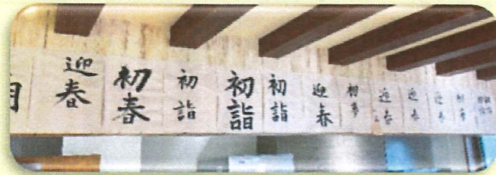 迎春
初春
初詣
初詣
初詣
迎春
初夢
迎春
迎春
迎春